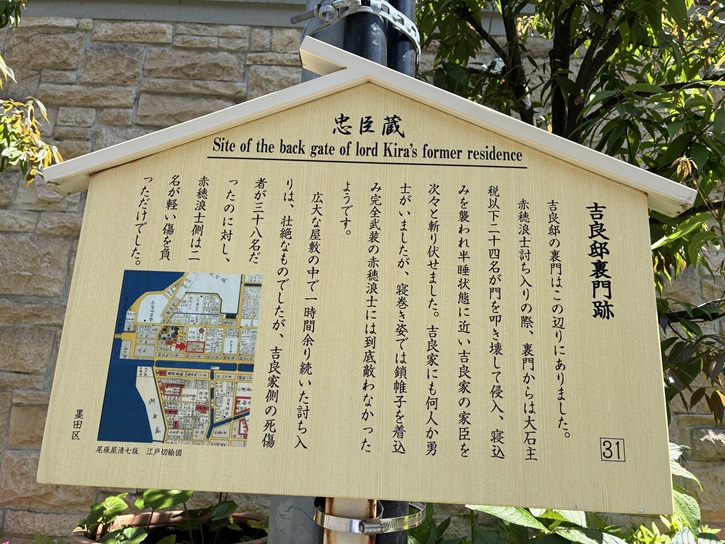 忠臣蔵
Site of the back gate of lord Kira's former residence
吉良邸裏門跡
31
吉良邸の裏門はこの辺りにありました。
赤穂浪士討ち入りの際、裏門からは大石主
税以下二十四名が門を叩き壊して侵入、寝込
みを襲われ半睡状態に近い吉良家の家臣を
次々と斬り伏せました。吉良家にも何人か勇
士がいましたが、寝巻き姿では鎖帷子を着込
み完全武装の赤穂浪士には到底敵わなかった
ようです。
広大な屋敷の中で一時間余り続いた討ち入
りは、壮絶なものでしたが、吉良家側の死傷
者が三十八名だ
ったのに対し、
赤穂浪士側は二
名が軽い傷を負
っただけでした。
尾張屋清七版 江戸切絵図
墨田区